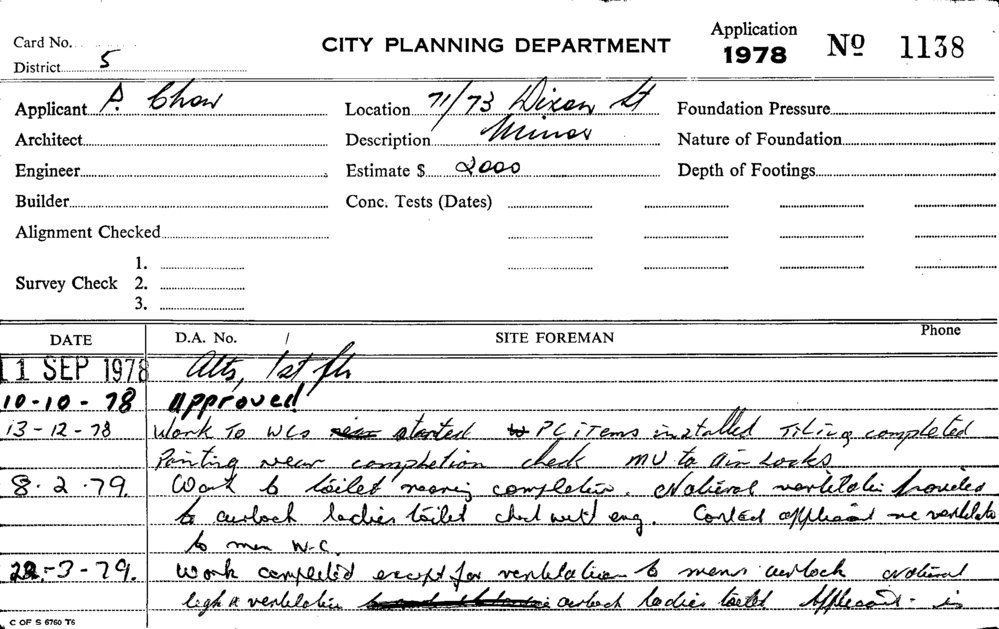 Card No.
CITY PLANNING DEPARTMENT
Application 1978 No 1138
District 5
Applicant P. Chow
Location 71/73 Dixon St
Foundation Pressure
Architect
Description Minor
Nature of Foundation
Engineer
Estimate $ 2000
Depth of Footings
Builder
Conc. Tests (Dates)
Alignment Checked
Survey Check 1.
2.
3.
DATE D.A. No. / SITE FOREMAN Phone
11 SEP 1978 Alts, 1st flr
10-10-78 Approved
13-12-78 Work To WCs started PC items installed Tiling completed
Painting near completion check MV to Air Locks
8.2.79. Work to toilet nearing completion. Natural ventilation provided
to airlock ladies toilet check with eng. Contact applicant re ventilation
to men W-C.
22-3-79. Work completed except for ventilation to mens airlock Natural
light & ventilation airlock ladies toilet Applicant is
C OF S 6760 T6